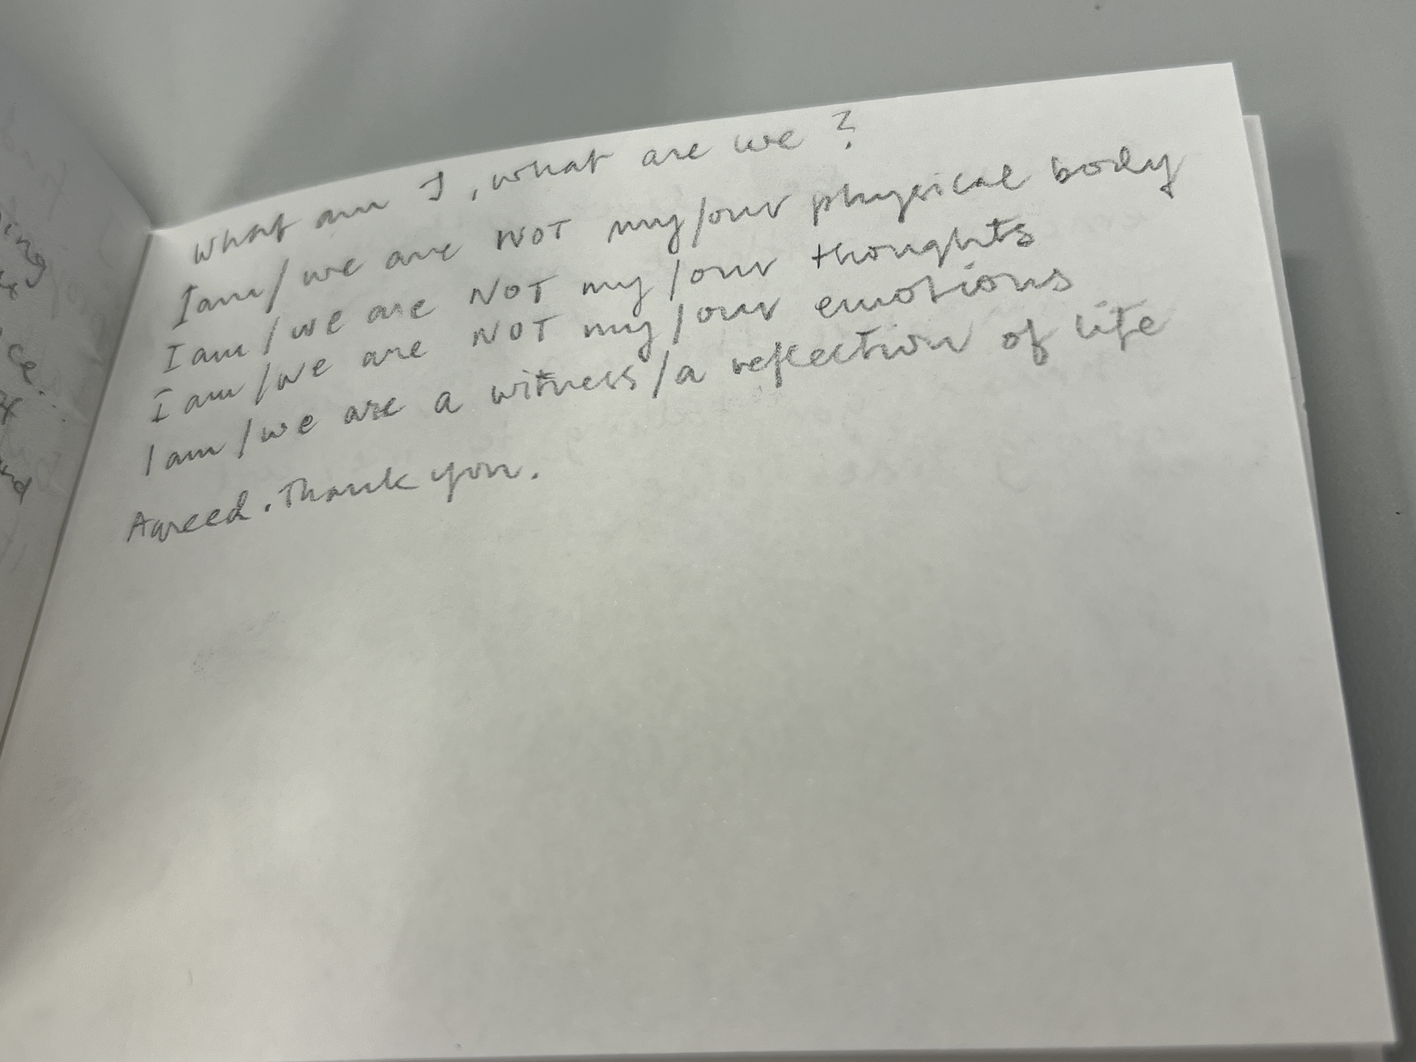 What am I, what are we?
I am/we are NOT my/our physical body
I am/we are NOT my/our thoughts
I am/we are NOT my/our emotions
I am/we are a witness/a reflection of life
Agreed. Thank you.